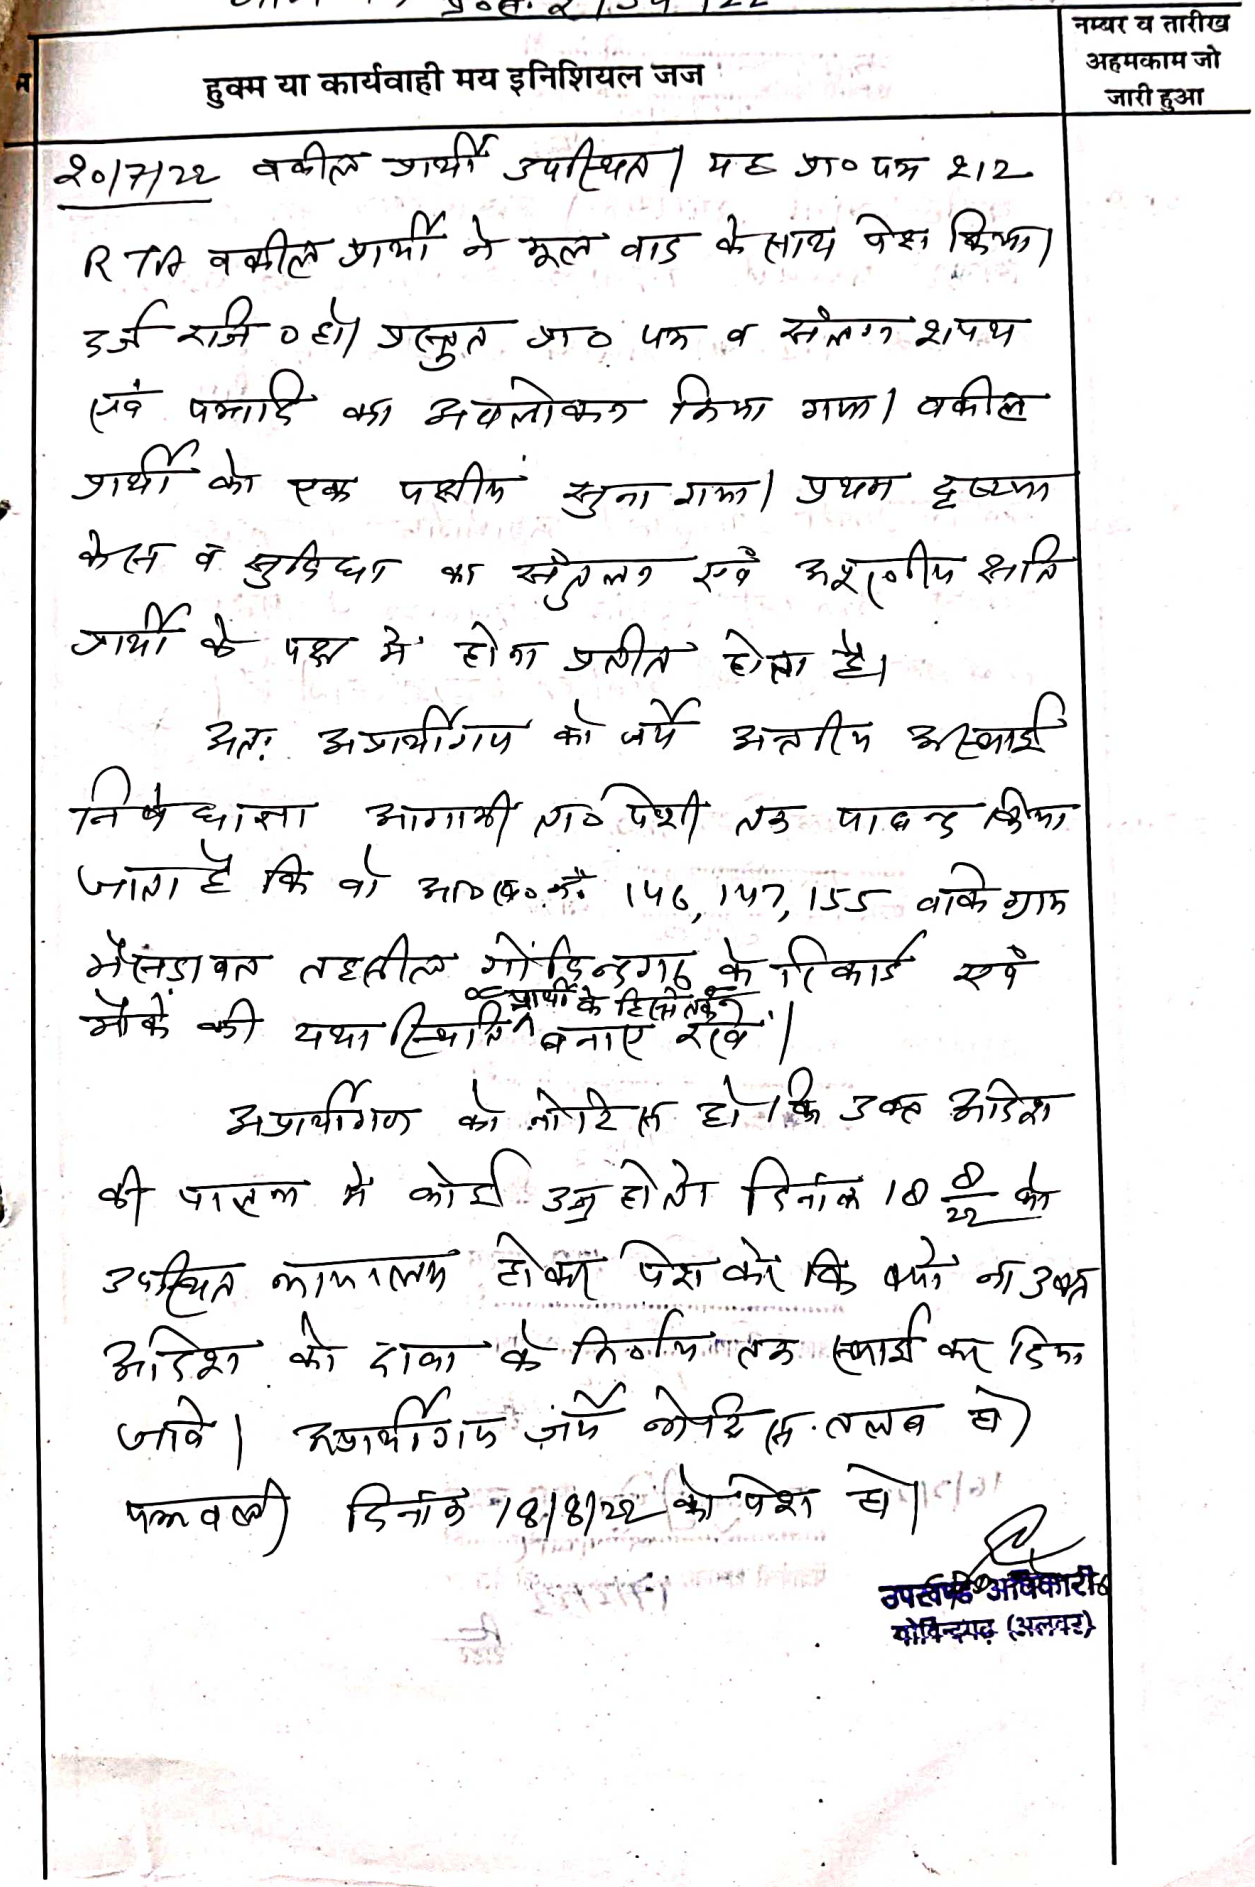 नम्बर व तारीख
अहमकाम जो
जारी हुआ
हुक्म या कार्यवाही मय इनिशियल जज
20/7/22 वकील प्रार्थी उपस्थित। यह प्रा० पत्र 212
RTA वकील प्रार्थी ने मूल वाद के साथ पेश किया।
दर्ज रजि० हो। प्रस्तुत प्रा० पत्र व संलग्न शपथ
एवं पत्रादि का अवलोकन किया गया। वकील
प्रार्थी को एक पक्षीय सुना गया। प्रथम दृष्टया
केस व सुविधा का संतुलन एवं अपूरणीय क्षति
प्रार्थी के पक्ष में होना प्रतीत होता है।
अतः अप्रार्थीगण को जर्ये अन्तरिम अस्थाई
निषेधाज्ञा आगामी ता० पेशी तक पाबन्द किया
जाता है कि वो आ०ख०नं० 146, 147, 155 वाके ग्राम
तहसील गोविन्दगढ के रिकार्ड एवं
प्रार्थी के हिस्से तक
मौके की यथा स्थिति बनाए रखे।
अप्रार्थीगण को नोटिस हो कि उक्त आदेश
की पालना में कोई उज्र हो तो दिनांक 18 8/22 को
उपस्थित न्यायालय होकर पेश करे कि क्यों ना उक्त
आदेश को दावा के निर्णय तक स्थाई कर दिया
जावे। अप्रार्थीगण जर्ये नोटिस तलब हो।
पत्रावली दिनांक 18/8/22 को पेश हो।
उपखण्ड अधिकारी
गोविन्दगढ़ (अलवर)